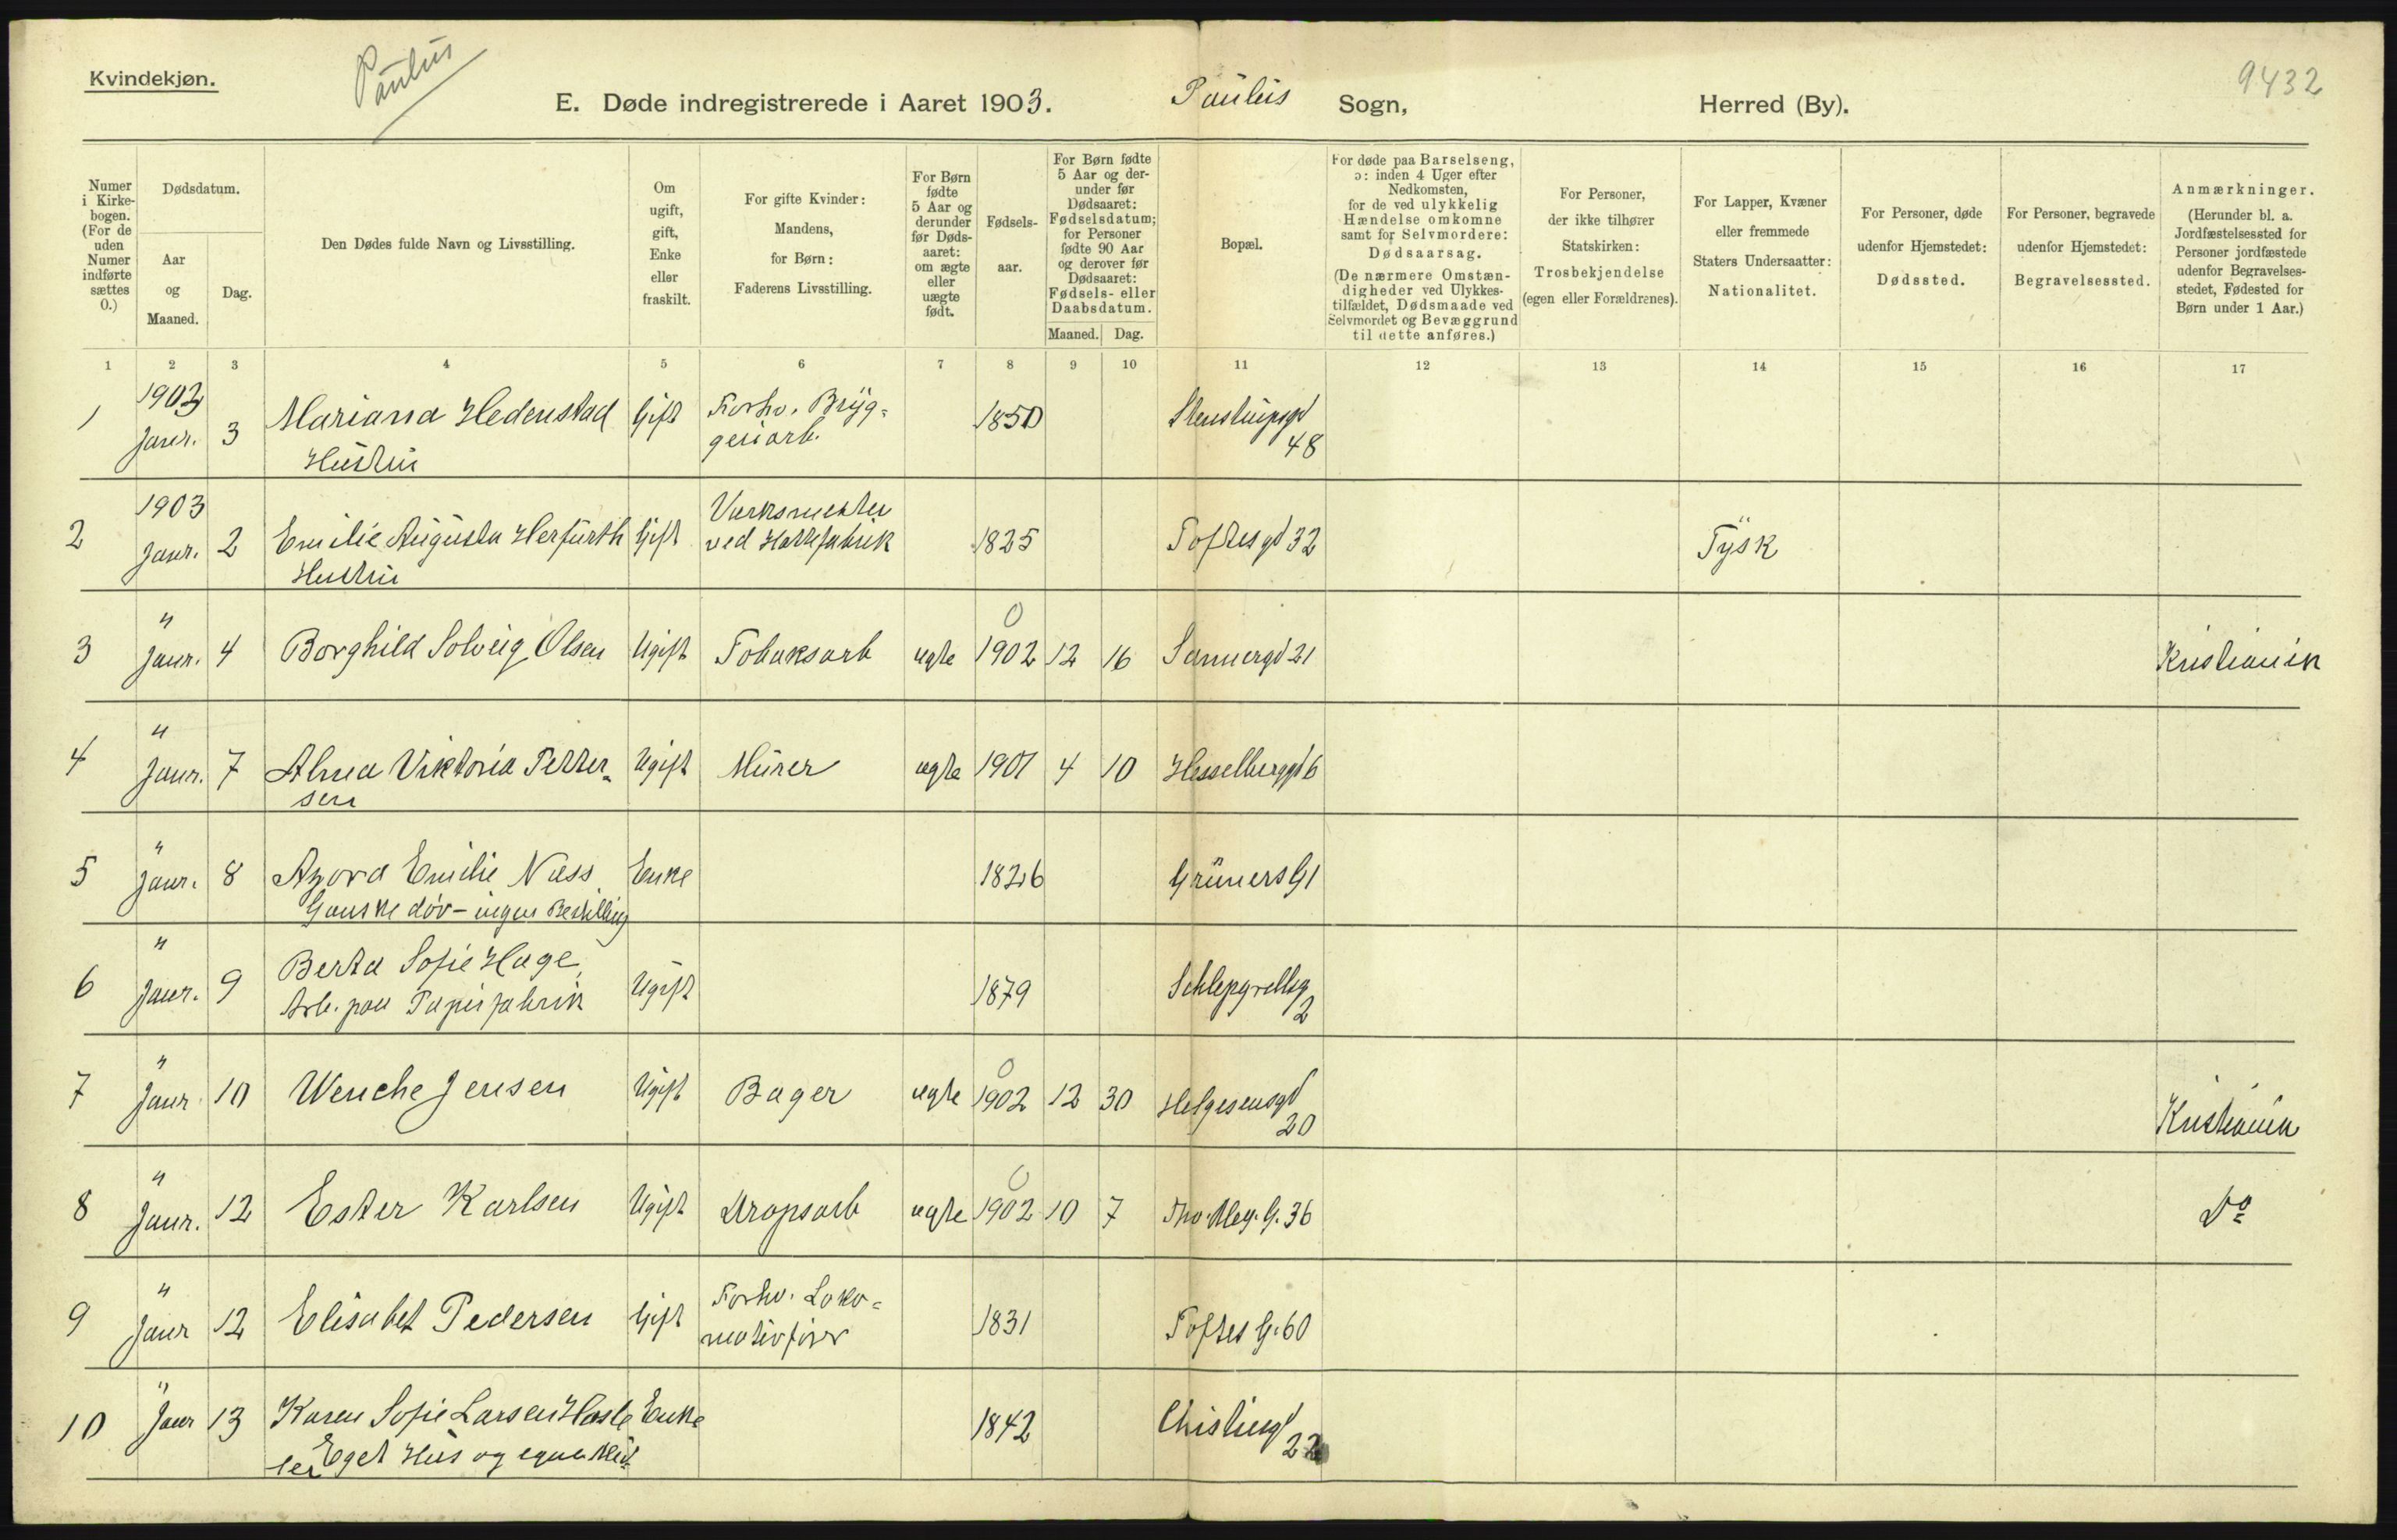 Kvindekjøn.
Paulus
E. Døde indregistrerede i Aaret 1903.
Paulus Sogn,
Herred (By).
9432
Numer i Kirke-bogen. (For de uden Numer indførte sættes 0.)
Dødsdatum.
Aar og Maaned.
Dag.
Den Dødes fulde Navn og Livsstilling.
Om ugift, gift, Enke eller fraskilt.
For gifte Kvinder: Mandens, for Børn: Faderens Livsstilling.
For Børn fødte 5 Aar og derunder før Døds-aaret: om ægte eller uægte født.
Fødsels-aar.
For Børn fødte 5 Aar og der-under før Dødsaaret: Fødselsdatum; for Personer fødte 90 Aar og derover før Dødsaaret: Fødsels- eller Daabsdatum.
Maaned. Dag.
Bopæl.
For døde paa Barselseng, ɔ: inden 4 Uger efter Nedkomsten, for de ved ulykkelig Hændelse omkomne samt for Selvmordere: Dødsaarsag. (De nærmere Omstæn-digheder ved Ulykkes-tilfældet, Dødsmaade ved Selvmordet og Bevæggrund til dette anføres.)
For Personer, der ikke tilhører Statskirken: Trosbekjendelse (egen eller Forældrenes).
For Lapper, Kvæner eller fremmede Staters Undersaatter: Nationalitet.
For Personer, døde udenfor Hjemstedet: Dødssted.
For Personer, begravede udenfor Hjemstedet: Begravelsessted.
Anmærkninger. (Herunder bl. a. Jordfæstelsessted for Personer jordfæstede udenfor Begravelses-stedet, Fødested for Børn under 1 Aar.)
1 2 3 4 5 6 7 8 9 10 11 12 13 14 15 16 17
1 1903 Janr. 3 Mariana Hedenstad Hustru Gift Forhv. Bryg-geriarb. 1850 Stenstrupsgd 48
2 1903 Janr. 2 Emilie Augusta Herfurth Hustru Gift Værksmester ved Hattefabrik 1825 Toftesgd 32 Tysk
3 " Janr. 4 Borghild Solveig Olsen Ugift Tobaksarb ægte 0 1902 12 16 Sannergd 21 Kristiania
4 " Janr. 7 Alma Viktoria Petter-sen Ugift Murer ægte 1901 4 10 Hesselberggd 6
5 " Janr. 8 Emilie Næss Ganske døv - ingen Bestilling Enke 1826 Grüners G 1
6 " Janr. 9 Berta Sofie Hage, Arb. paa Papirfabrik Ugift 1879 Schlepgrellsg 2
7 " Janr 10 Wenche Jensen Ugift Bager ægte 0 1902 12 30 Helgesensgd 20 Kristiania
8 " Janr. 12 Ester Karlsen Ugift Dropsarb ægte 0 1902 10 7 Thv. Mey. G. 36 Do
9 " Janr 12 Elisabet Pedersen Gift Forhv. Loko-motivfører 1831 Toftes G. 60
10 " Janr 13 Karen Sofie Larsen Hasle Eget Hus og egne Mid-ler Enke 1842 22